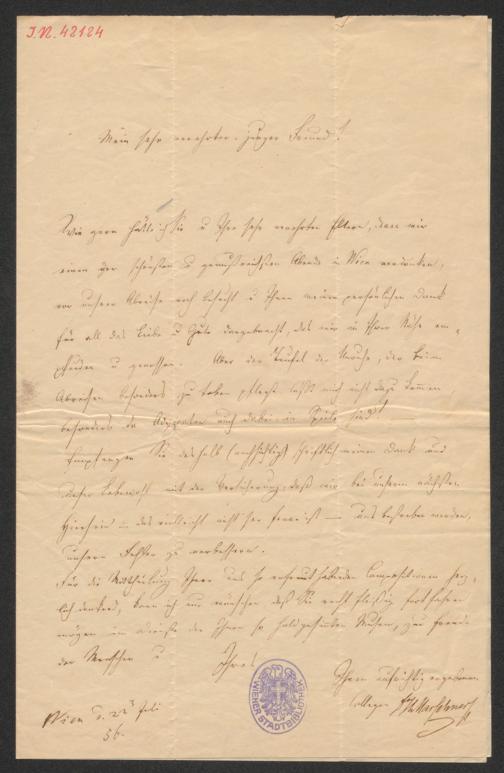 I.N. 42124
Mein sehr verehrter junger Freund!
Wie gern hätte ich Sie u Ihre sehr verehrten Eltern, denen wir
einen der schönsten u genußreichsten Abende in Wien verdanken,
vor unserer Abreise noch besucht u Ihnen meinen persönlichen Dank
für all das Liebe u Gute dargebracht, das wir in Ihrer Nähe em-
pfunden u genossen. Aber der Teufel der Unruhe, der beim
Abreisen besonders zu toben pflegt ließ mich nicht dazu kommen,
besonders da Advocaten auch dabei im Spiele sind!
Empfangen Sie deshalb schriftlich meinen Dank und
Lebewohl mit der Versicherung, daß wir bei unserem nächsten
Hiersein das vielleicht nicht fern ist — uns bestreben werden,
unsern Fehler zu verbessern.
Für die Mittheilung Ihrer uns so erfreut habenden Compositionen herz-
lich dankend, kann ich nur wünschen daß Sie recht fleißig fortfahren
mögen im Dienste der Ihnen so hold gesinnten Musen, zur Freude
der Menschen u Ihrer
Ihren aufrichtig ergebenen
Collegen HMarschner
Wien d. 22 Juli
56.
WIENER STADTBIBLIOTHEK